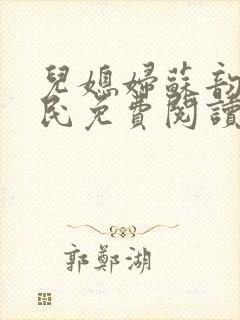 兒媳婦蘇韵
民免費閱讀
郭鄭湖